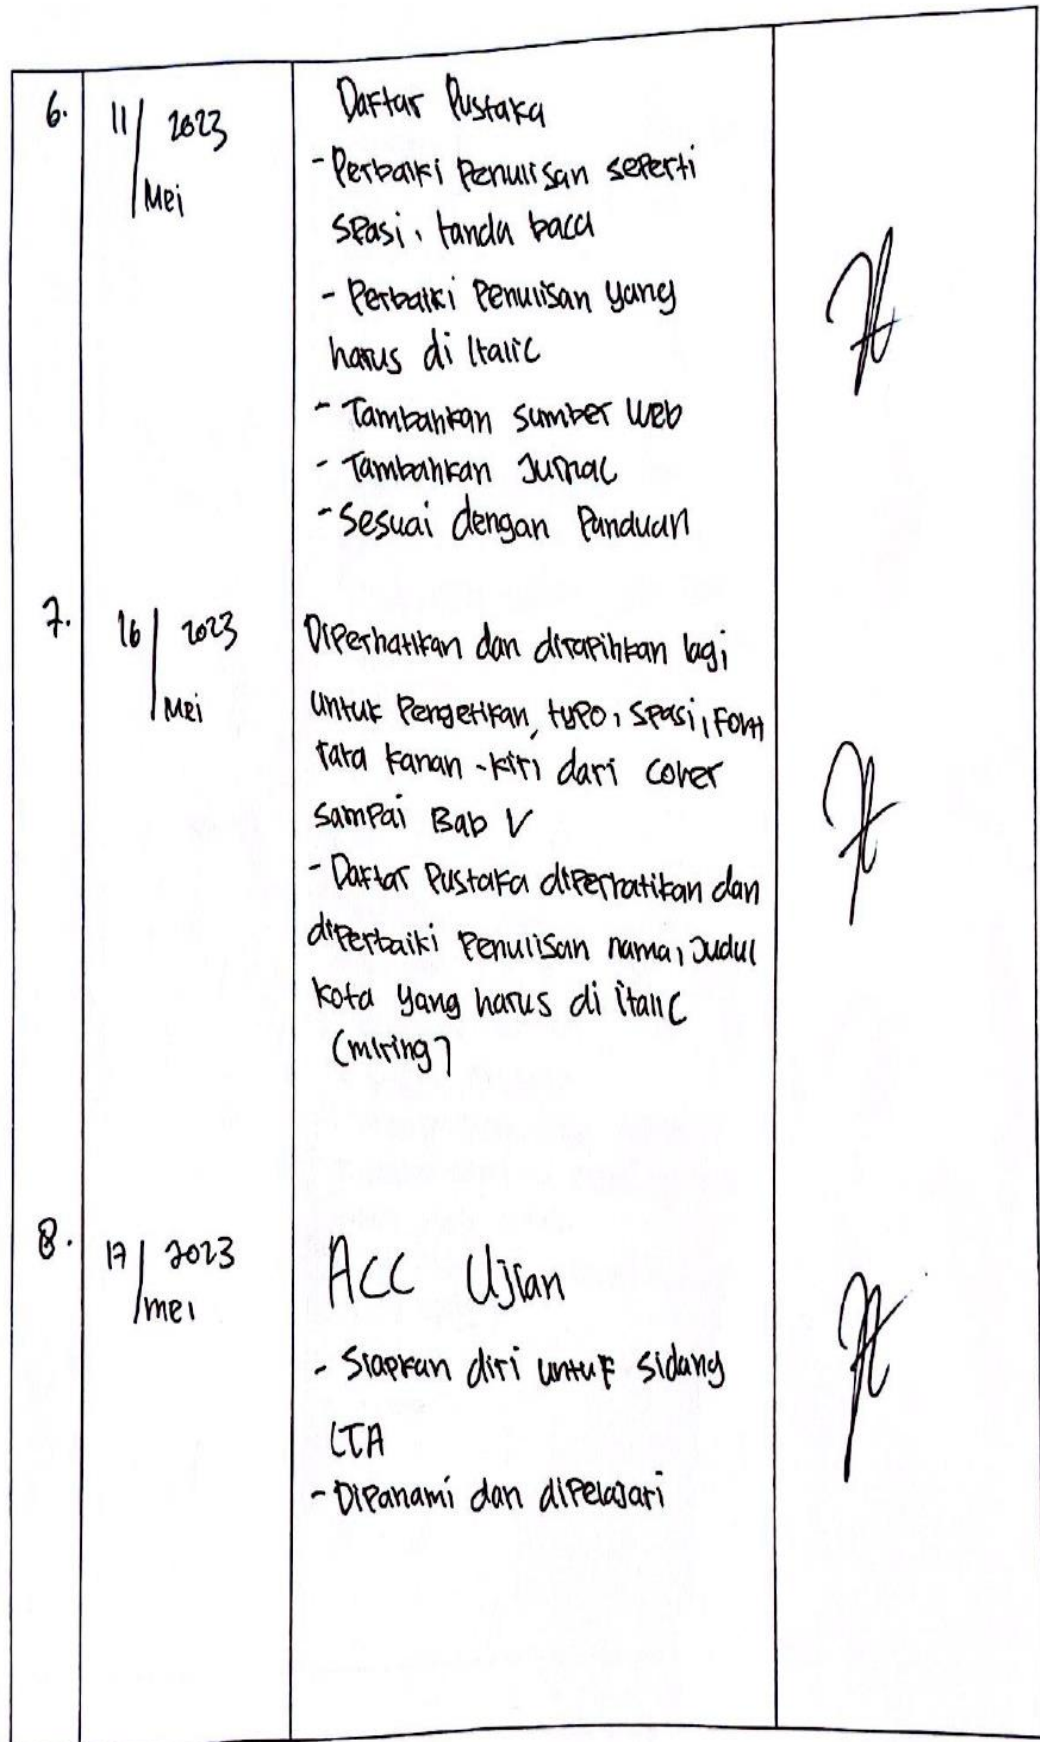 6.
11/ 2023
Mei
Daftar Pustaka
- Perbaiki Penulisan seperti
spasi, tanda baca
- Perbaiki Penulisan yang
harus di Italic
- Tambahkan sumber web
- Tambahkan Jurnal
- Sesuai dengan Panduan
7.
16/ 2023
Mei
Diperhatikan dan dirapihkan lagi
untuk Pengetikan, typo, spasi, Font
rata kanan - kiri dari cover
sampai Bab V
- Daftar Pustaka diperhatikan dan
diperbaiki Penulisan nama, Judul
kota yang harus di italic
(miring)
8.
17/ 2023
mei
ACC Ujian
- Siapkan diri untuk sidang
LTA
- Dipahami dan dipelajari